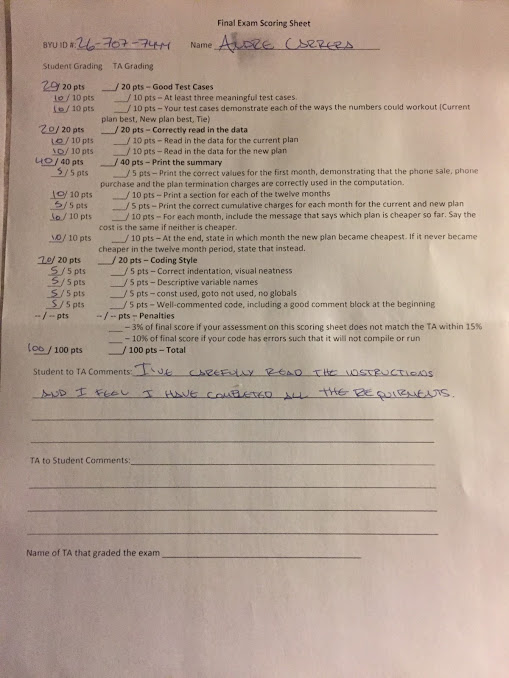 Final Exam Scoring Sheet
BYU ID #: 26-707-7499 Name ANDRE CARRERA
Student Grading TA Grading
20/ 20 pts __/ 20 pts – Good Test Cases
10/ 10 pts __/ 10 pts – At least three meaningful test cases.
10/ 10 pts __/ 10 pts – Your test cases demonstrate each of the ways the numbers could workout (Current
plan best, New plan best, Tie)
20/ 20 pts __/ 20 pts – Correctly read in the data
10/ 10 pts __/ 10 pts – Read in the data for the current plan
10/ 10 pts __/ 10 pts – Read in the data for the new plan
40/ 40 pts __/ 40 pts – Print the summary
5/ 5 pts __/ 5 pts – Print the correct values for the first month, demonstrating that the phone sale, phone
purchase and the plan termination charges are correctly used in the computation.
10/ 10 pts __/ 10 pts – Print a section for each of the twelve months
5/ 5 pts __/ 5 pts – Print the correct cumulative charges for each month for the current and new plan
10/ 10 pts __/ 10 pts – For each month, include the message that says which plan is cheaper so far. Say the
cost is the same if neither is cheaper.
10/ 10 pts __/ 10 pts – At the end, state in which month the new plan became cheapest. If it never became
cheaper in the twelve month period, state that instead.
20/ 20 pts __/ 20 pts – Coding Style
5/ 5 pts __/ 5 pts – Correct indentation, visual neatness
5/ 5 pts __/ 5 pts – Descriptive variable names
5/ 5 pts __/ 5 pts – const used, goto not used, no globals
5/ 5 pts __/ 5 pts – Well-commented code, including a good comment block at the beginning
-- / -- pts -- / -- pts – Penalties
__ – 3% of final score if your assessment on this scoring sheet does not match the TA within 15%
__ – 10% of final score if your code has errors such that it will not compile or run
100/ 100 pts __/ 100 pts – Total
Student to TA Comments: I'VE CAREFULY READ THE INSTRUCTIONS
AND I FEEL I HAVE COMPLETED ALL THE REQUIRMENTS.
TA to Student Comments:
Name of TA that graded the exam